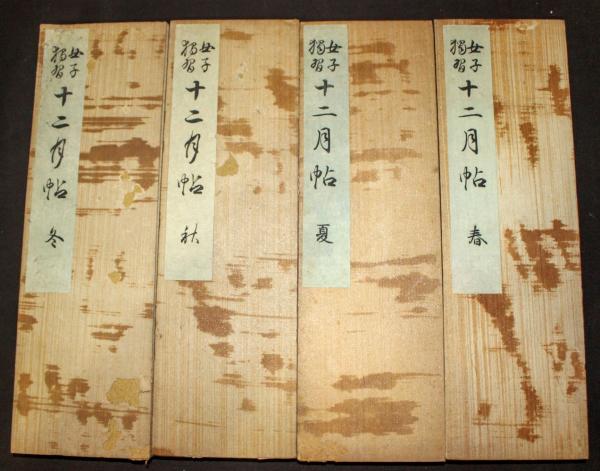 女子
獨習
十二月帖 春
女子
獨習
十二月帖 夏
女子
獨習
十二月帖 秋
女子
獨習
十二月帖 冬